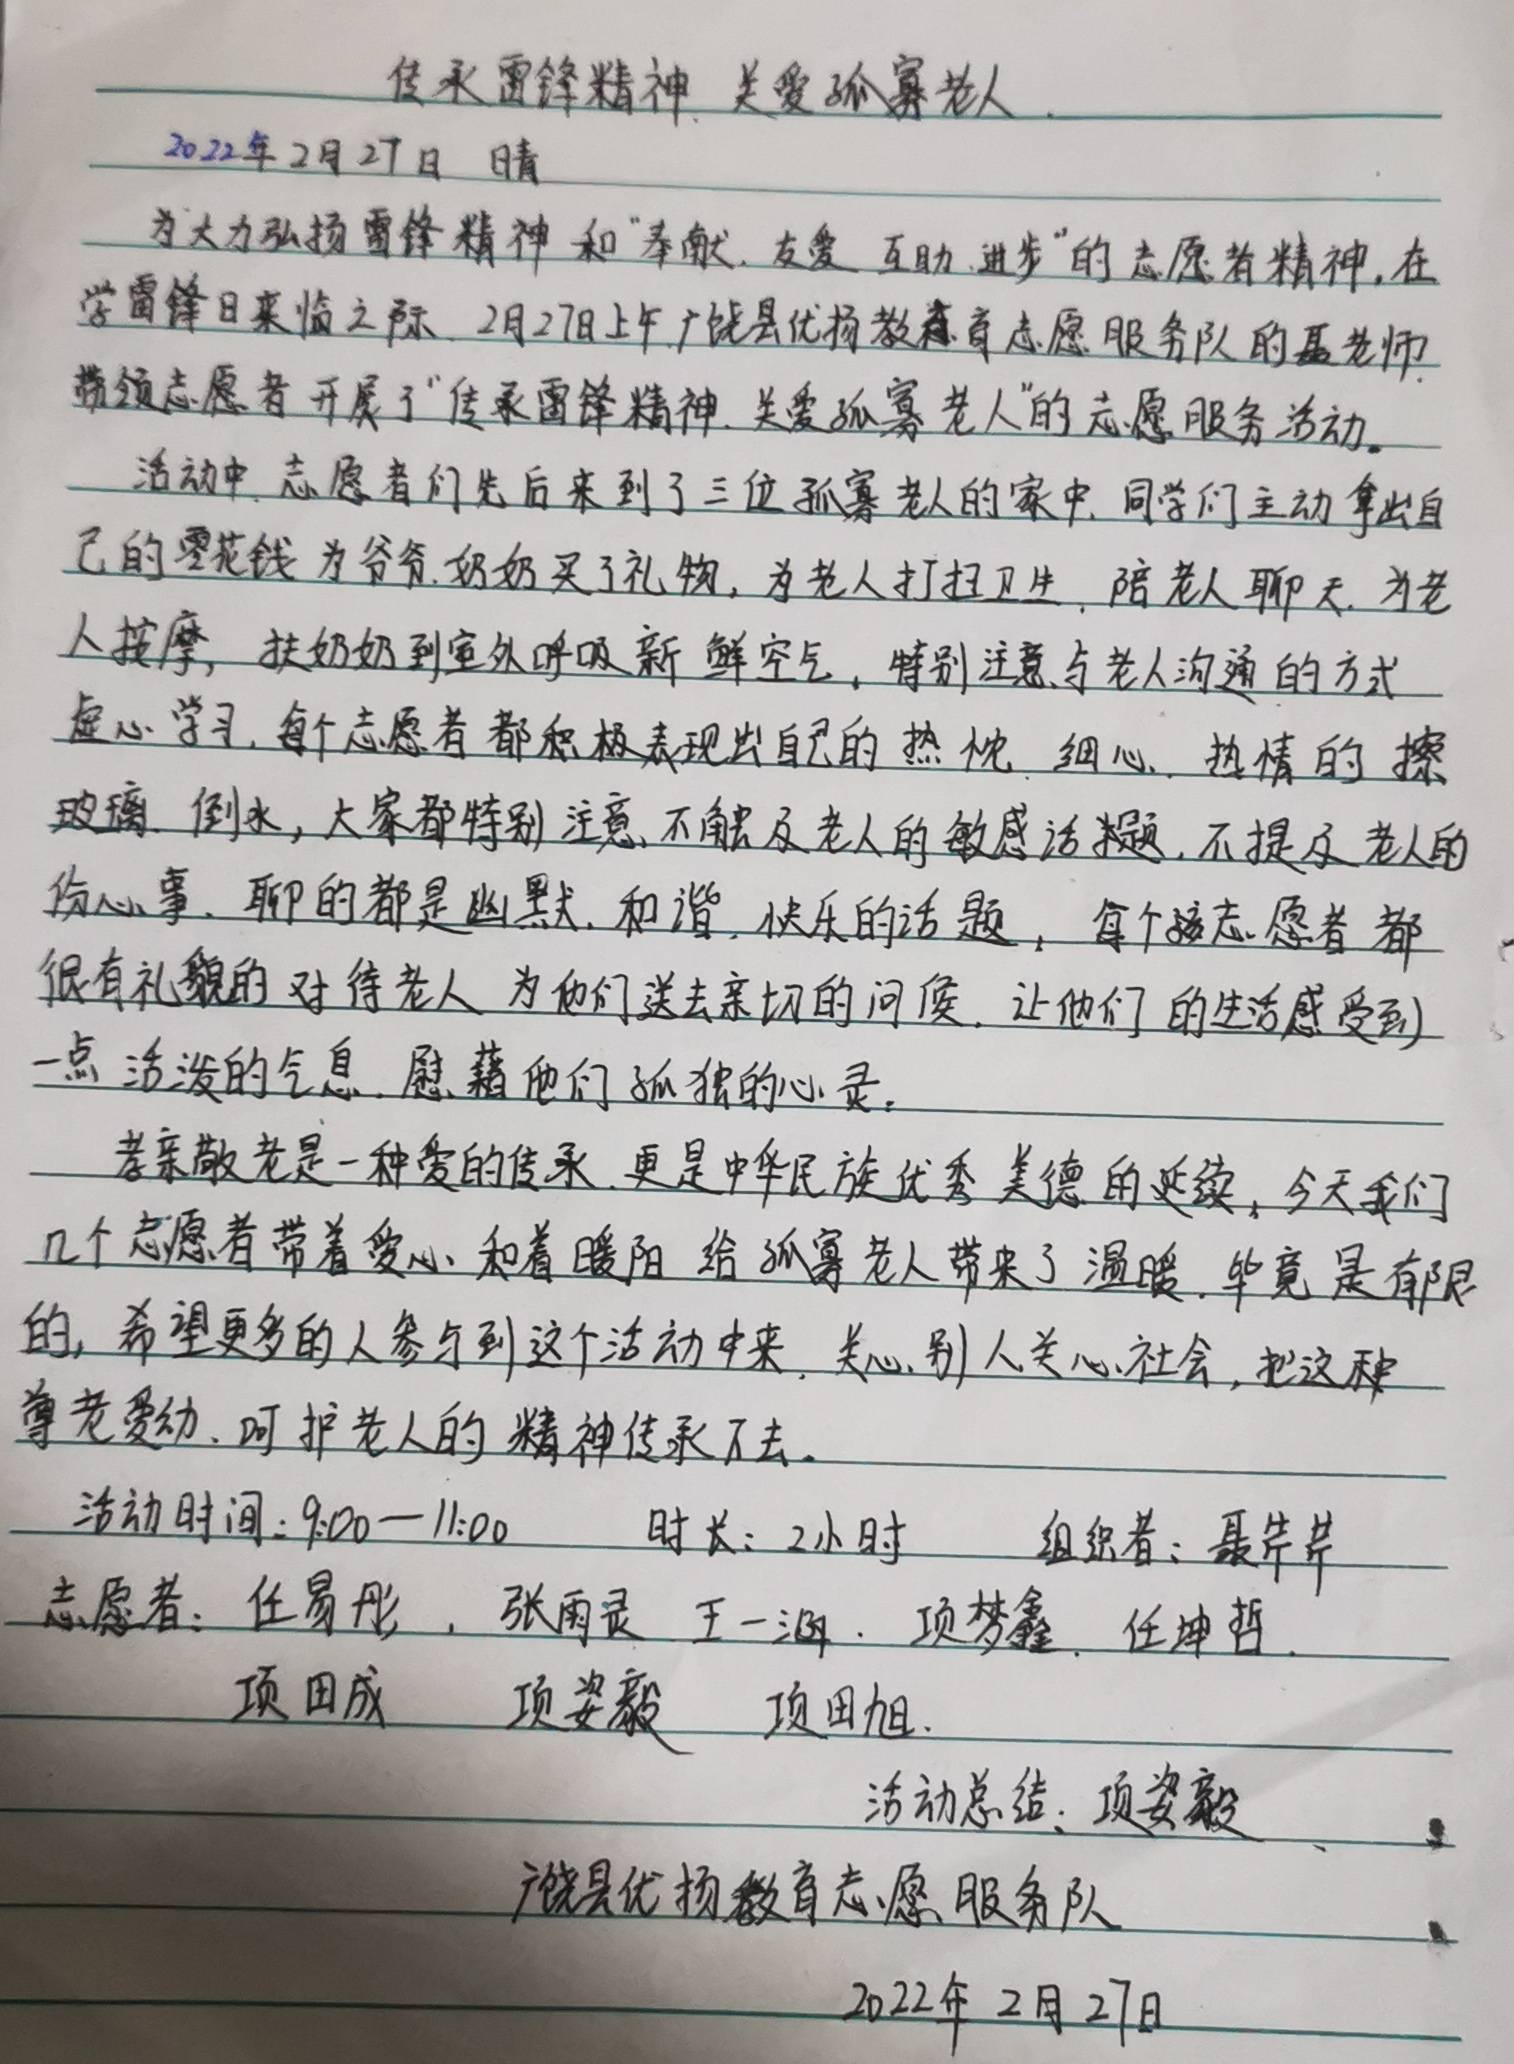 传承雷锋精神、关爱孤寡老人.
2022年2月27日 晴
为大力弘扬雷锋精神和“奉献、友爱 互助、进步”的志愿者精神,在
学雷锋日来临之际、2月27日上午,广饶县优扬教育志愿服务队的聂老师
带领志愿者开展了“传承雷锋精神、关爱孤寡老人”的志愿服务活动。
活动中、志愿者们先后来到了三位孤寡老人的家中、同学们主动拿出自
己的零花钱为爷爷、奶奶买了礼物,为老人打扫卫生、陪老人聊天、为老
人按摩,扶奶奶到室外呼吸新鲜空气,特别注意与老人沟通的方式
虚心学习、每个志愿者都积极表现出自己的热忱、细心、热情的擦
玻璃、倒水,大家都特别注意不触及老人的敏感话题、不提及老人的
伤心事、聊的都是幽默、和谐、快乐的话题,每个志愿者都
很有礼貌的对待老人 为他们送去亲切的问候、让他们的生活感受到
一点活泼的气息、慰藉他们孤独的心灵。
孝亲敬老是一种爱的传承、更是中华民族优秀美德的延续,今天我们
几个志愿者带着爱心、和着暖阳 给孤寡老人带来了温暖、毕竟是有限
的,希望更多的人参与到这个活动中来、关心别人关心社会,把这种
尊老爱幼、呵护老人的精神传承下去。
活动时间:9:00—11:00 时长:2小时 组织者:聂芹芹
志愿者:任易彤、张雨灵 王一涵、项梦鑫、任坤哲、
项田成 项姿毅 项田旭.
活动总结:项姿毅
广饶县优扬教育志愿服务队
2022年2月27日